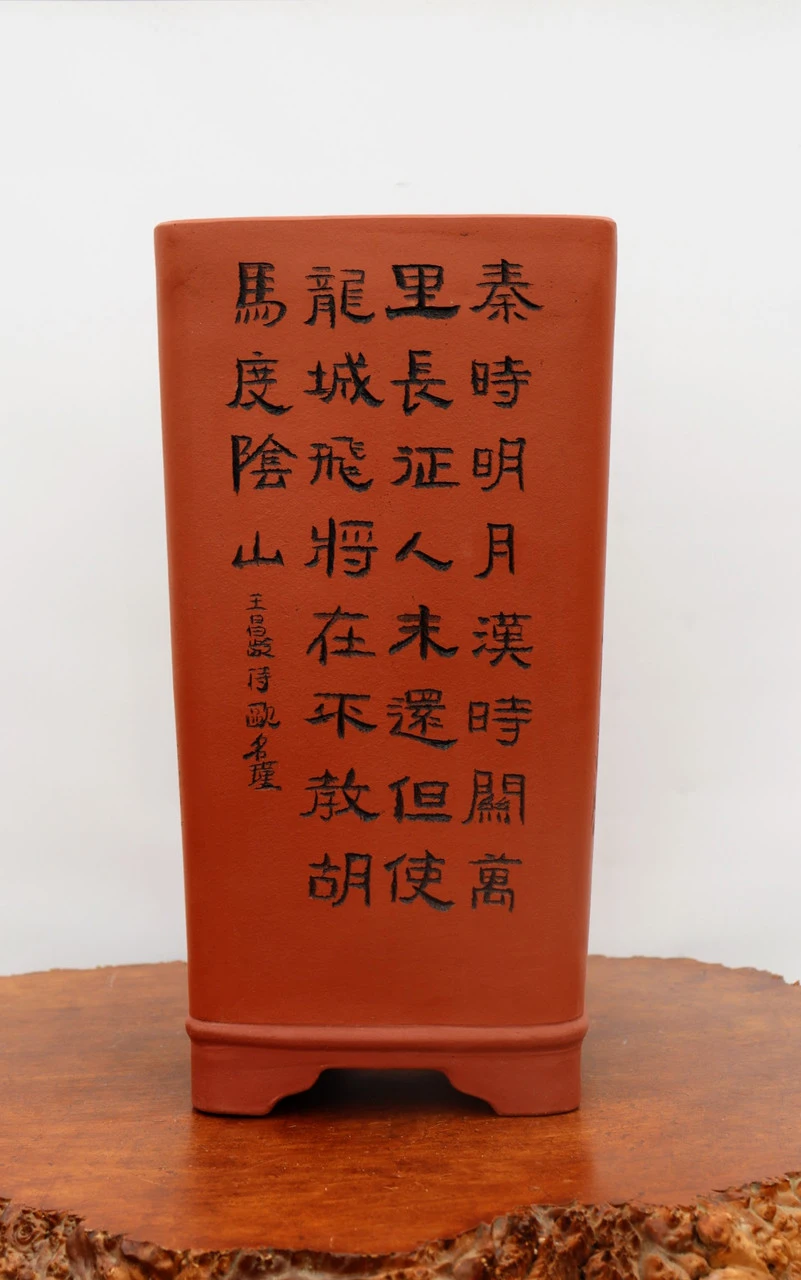 秦時明月漢時關萬
里長征人未還但使
龍城飛將在不教胡
馬度陰山
王昌齡詩歐名瑾